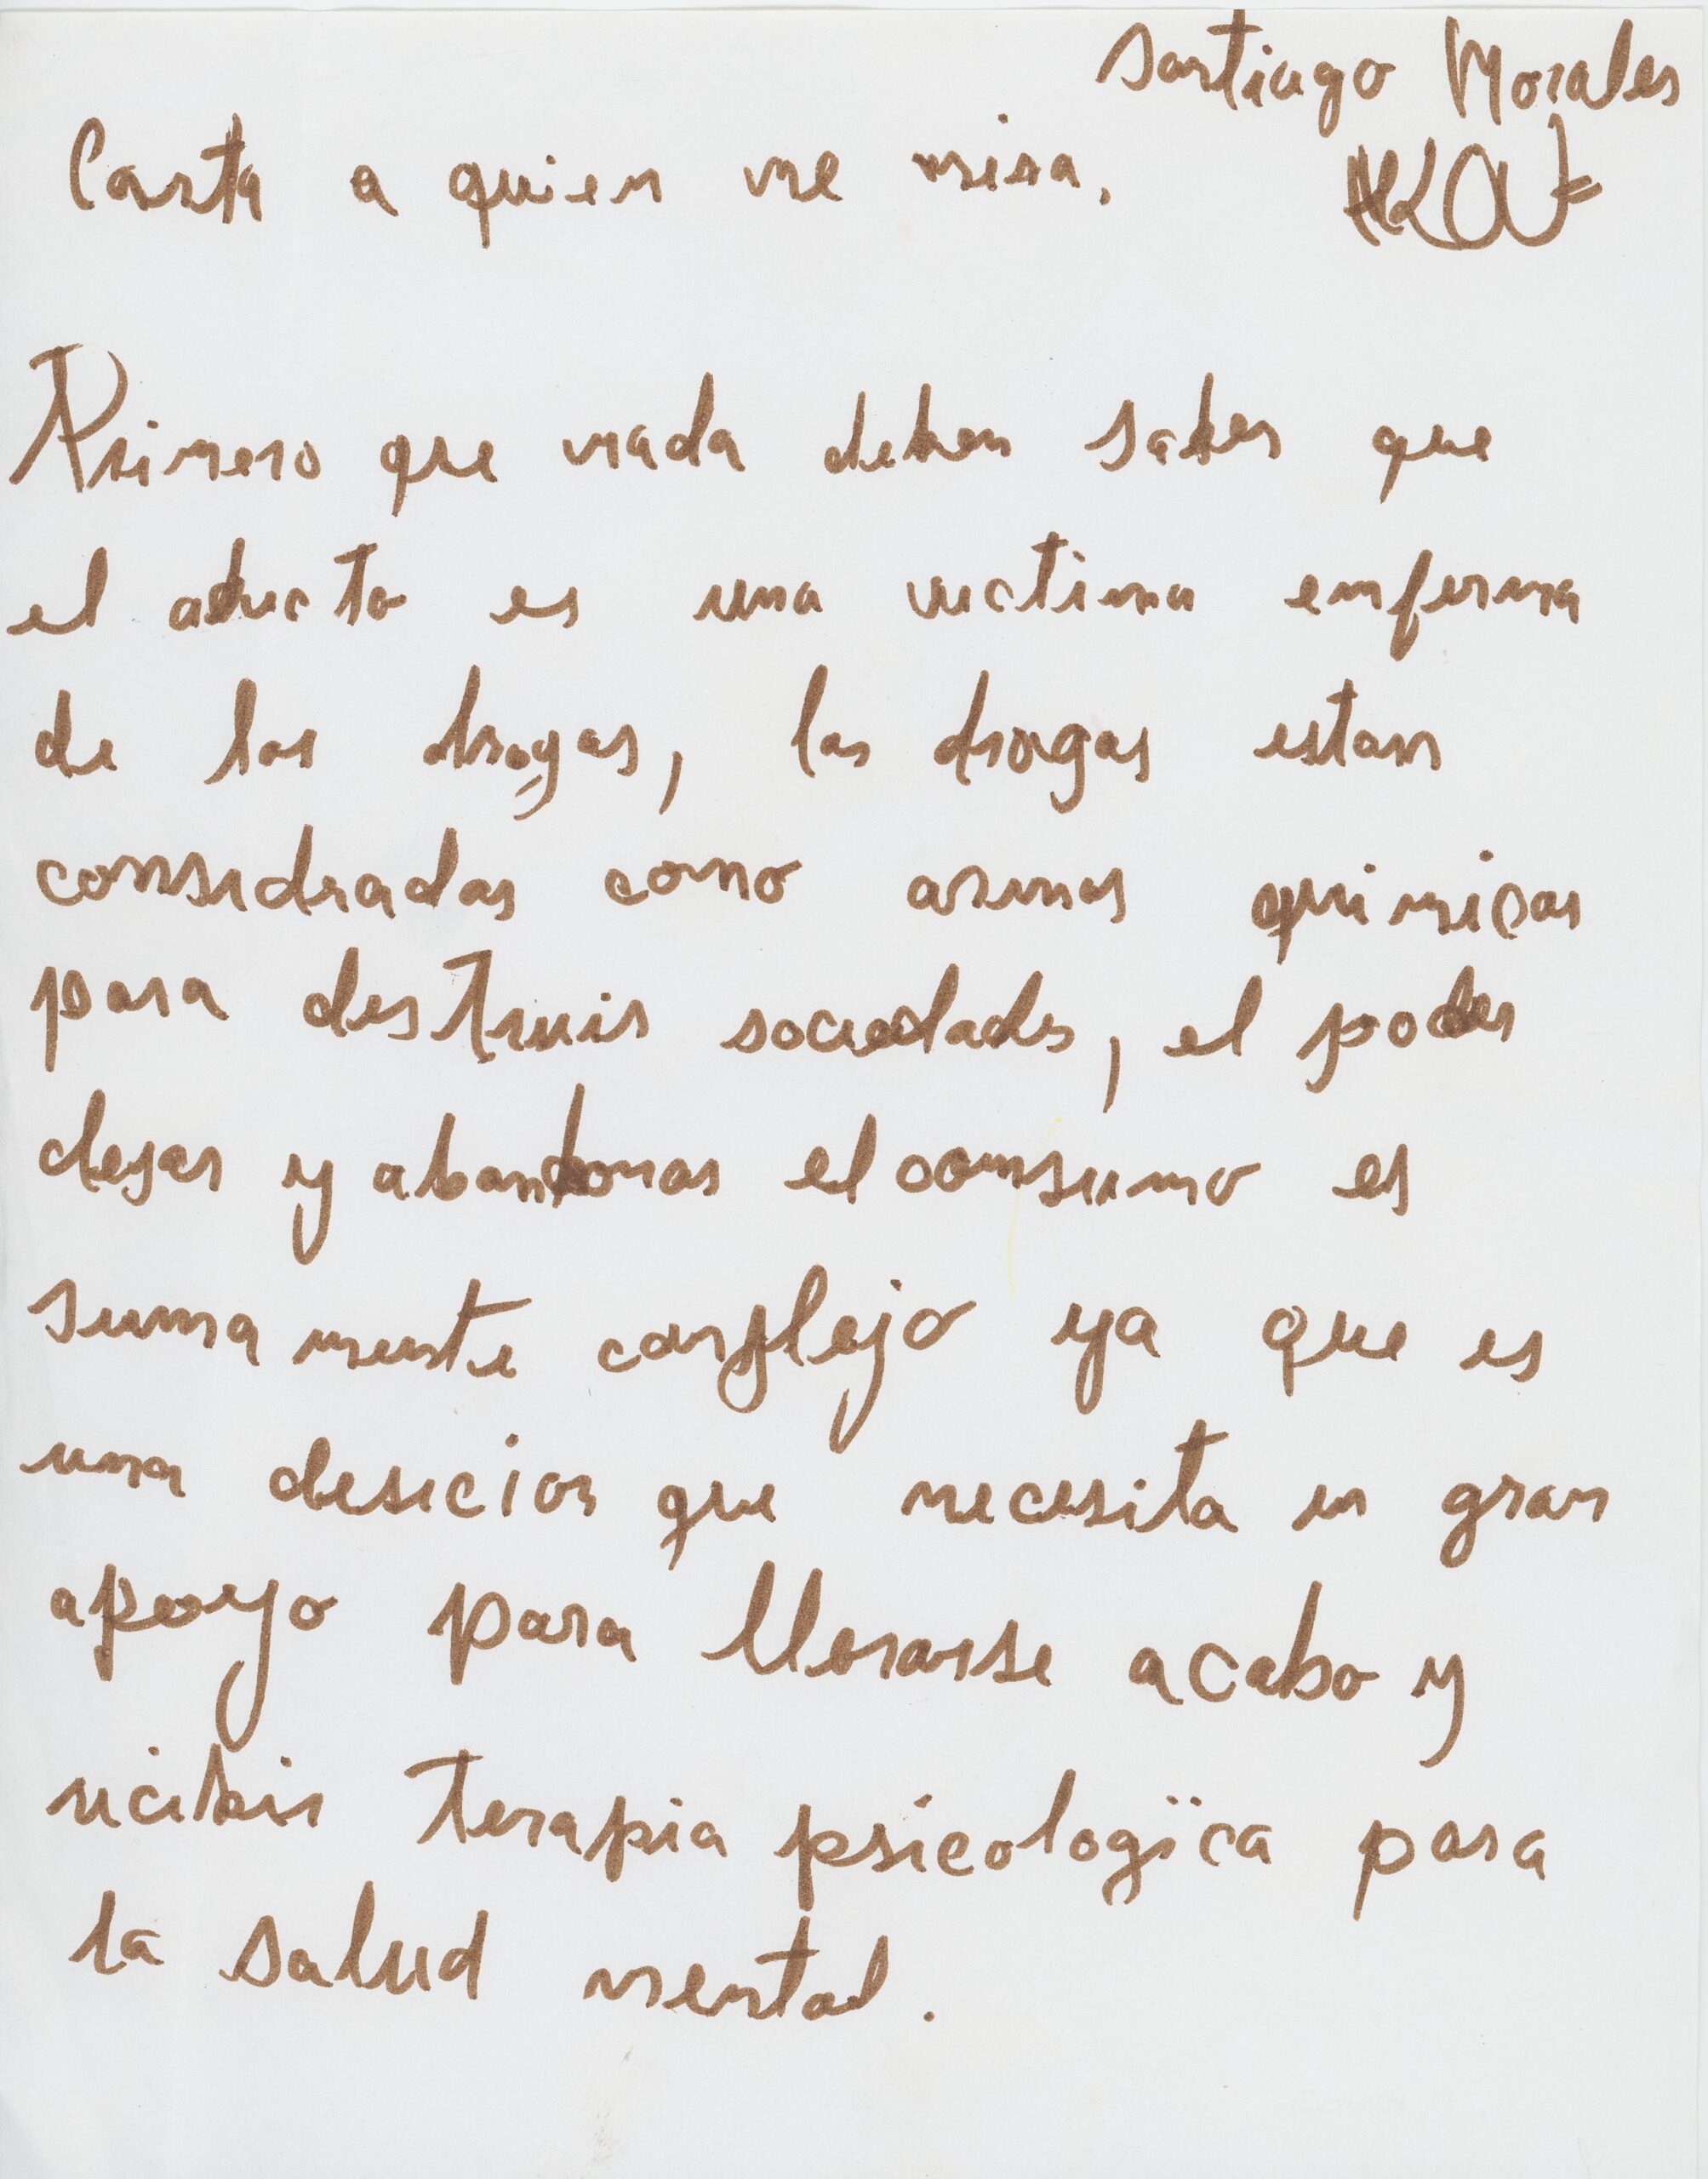 Santiago Morales
Carta a quien me mira.
Primero que nada deben saber que
el adicto es una victima enferma
de las drogas, las drogas estan
considradas como armas quimicas
para destruir sociedades, el poder
dejar y abandonar el consumo es
suma mente complejo ya que es
una desicion que necesita un gran
apoyo para llevarse acabo y
recibir terapia psicologïca para
la salud mental.